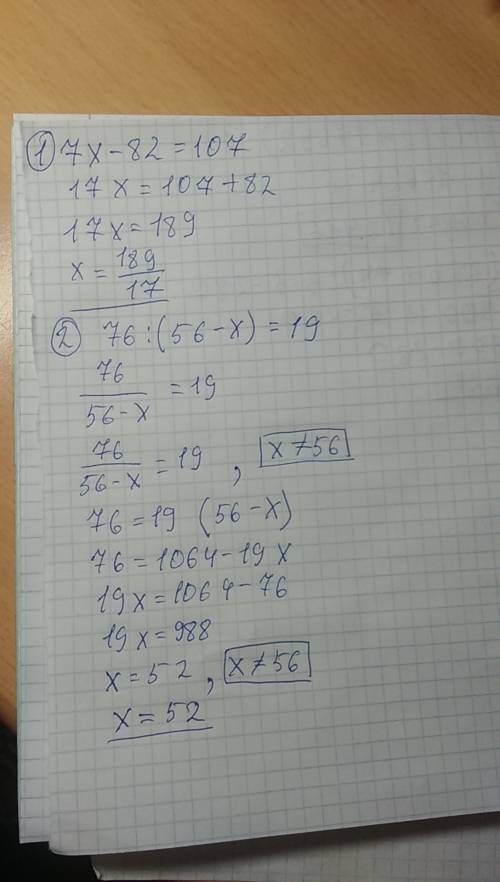 ① 7x-82=107
17x=107+82
17x=189
x=189/17
② 76:(56-x)=19
76/56-x =19
76/56-x =19, x≠56
76=19 (56-x)
76=1064-19x
19x=1064-76
19x=988
x=52, x≠56
x=52